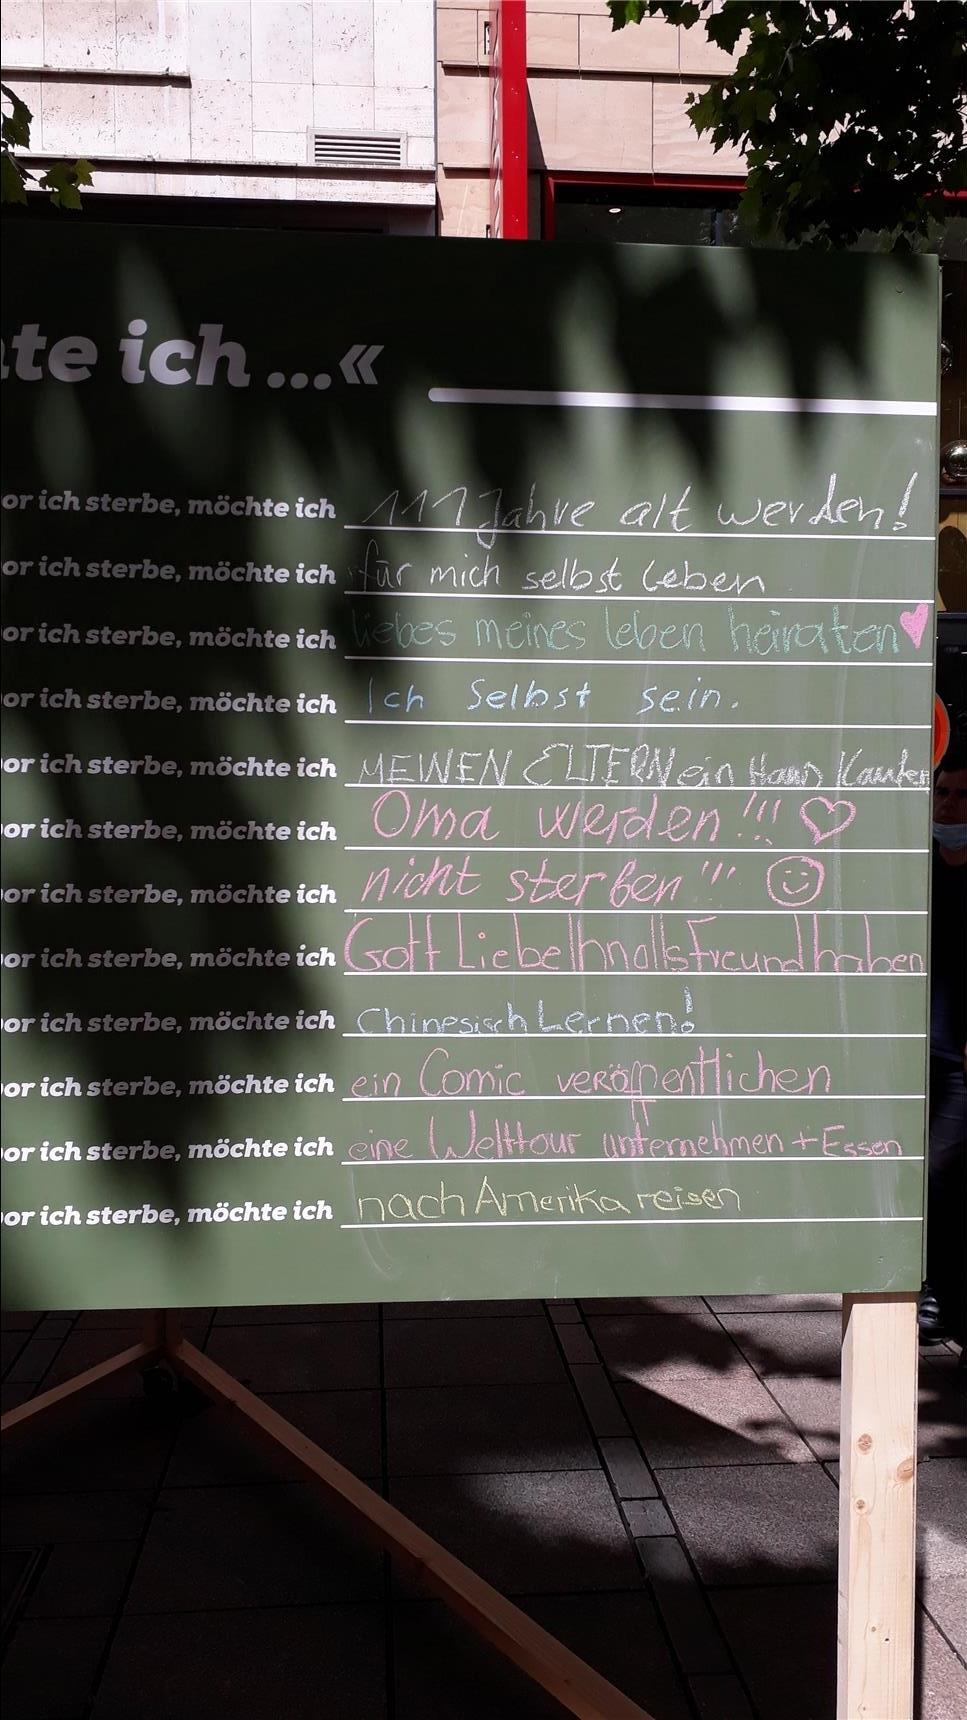 te ich ...«
or ich sterbe, möchte ich 111 Jahre alt werden!
or ich sterbe, möchte ich für mich selbst leben
or ich sterbe, möchte ich liebes meines leben heiraten
or ich sterbe, möchte ich Ich Selbst sein.
or ich sterbe, möchte ich MEINEN ELTERN ein Haus Kaufen
or ich sterbe, möchte ich Oma werden!!!
or ich sterbe, möchte ich nicht sterben!!!
or ich sterbe, möchte ich Gott Liebe
or ich sterbe, möchte ich Chinesisch Lernen!
or ich sterbe, möchte ich ein Comic veröffentlichen
or ich sterbe, möchte ich eine Welttour unternehmen + Essen
or ich sterbe, möchte ich nach Amerika reisen